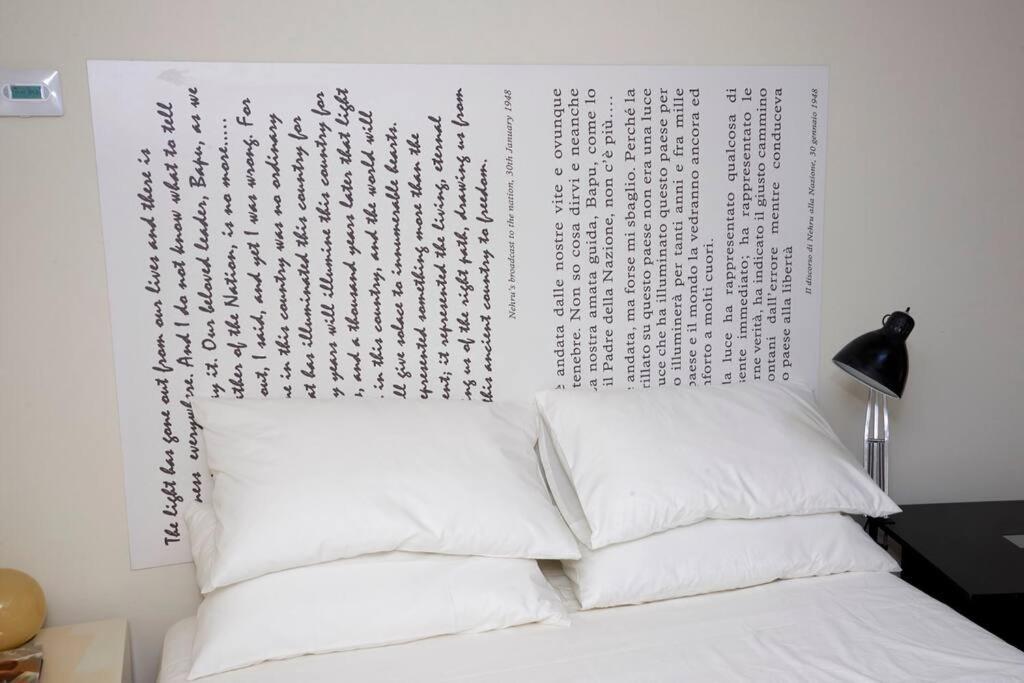 The light has gone out from our lives and there is
ness everywhere. And I do not know what to tell
y it. Our beloved leader, Bapu, as we
ther of the Nation, is no more....
out, I said, and yet I was wrong. For
ne in this country was no ordinary
at has illuminated this country for
y years will illumine this country for
, and a thousand years later that light
in this country, and the world will
ll give solace to innumerable hearts.
presented something more than the
ent; it represented the living, eternal
ng us of the right path, drawing us from
this ancient country to freedom.
Nehru's broadcast to the nation, 30th January 1948
è andata dalle nostre vite e ovunque
tenebre. Non so cosa dirvi e neanche
a nostra amata guida, Bapu, come lo
il Padre della Nazione, non c'è più....
andata, ma forse mi sbaglio. Perché la
rillato su questo paese non era una luce
uce che ha illuminato questo paese per
o illuminerà per tanti anni e fra mille
paese e il mondo la vedranno ancora ed
nforto a molti cuori.
la luce ha rappresentato qualcosa di
sente immediato; ha rappresentato le
rne verità, ha indicato il giusto cammino
ontani dall'errore mentre conduceva
o paese alla libertà
Il discorso di Nehru alla Nazione, 30 gennaio 1948